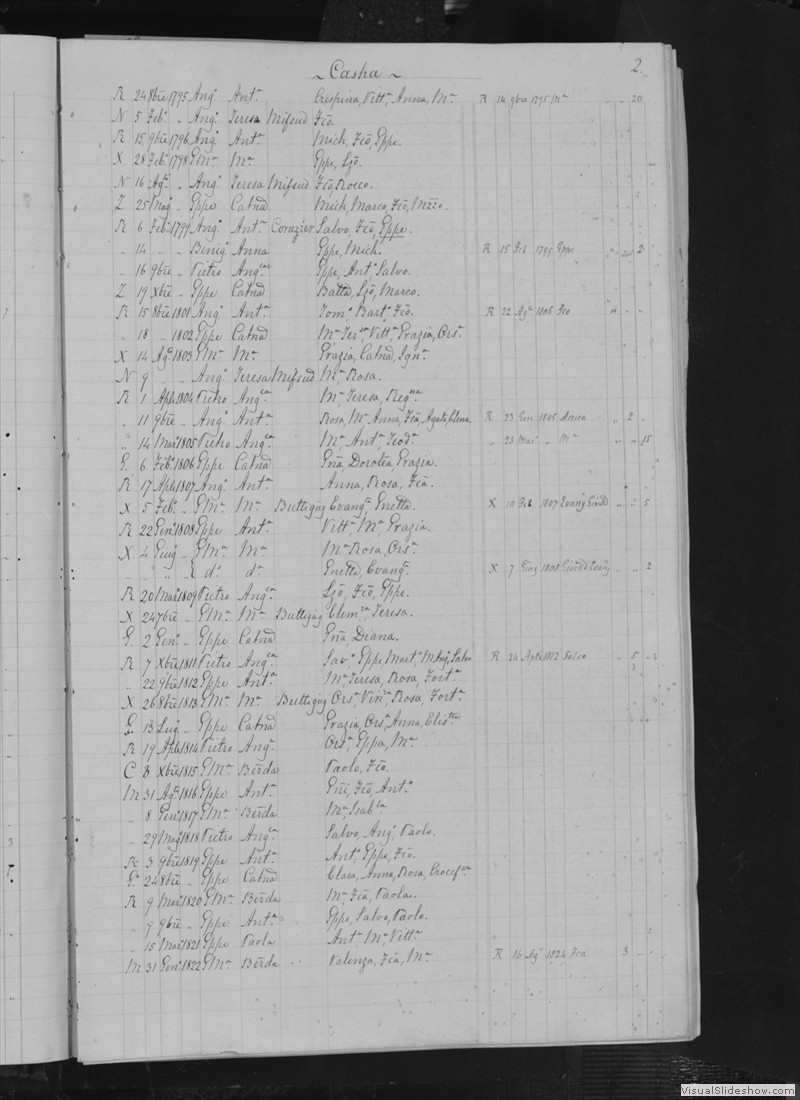 Casha 2.
R 24 8bre 1795 Angº Antª Crispina, Vittª, Anna, Mª R 14 9bre 1795 Mª 20
N 5 Febº " Angº Teresa Mifsud Fcõ.
R 15 9bre 1796 Angº Antª Mich, Fcõ, Gppe.
X 28 Febº 1798 GMª Mª Gppe, Ljõ.
N 16 Agº " Angº Teresa Mifsud Fcõ, Rocco.
Z 25 Magº Gppe Catnã Mich, Marco, Fcõ,
R 6 Febº 1799 Angº Antª Salvo, Fcõ, Gppe.
" 14 " " Benigº Anna Gppe, Mich. R 15 Feb 1799 Gppe 2
" 16 9bre " Pietro Angªª Gppe, Antº Salvo.
Z 19 Xbre " Gppe Catnã Battã, Ljõ, Marco.
R 15 8bre 1801 Angº Antª Tomº, Bartº, Fcõ. R 22 Agº 1805 Fco 4
" 18 " 1802 Gppe Catnã Mª Terªª, Vittª, Grazia, Orsª.
X 14 Agº 1803 GMª Mª Grazia, Catnã, Ignª.
N 9 " " Angº Teresa Mifsud Mª Rosa.
R 1 Aple 1804 Pietro Angªª Mª Teresa, Regªª
" 11 9bre " Angº Antª Rosa, Mª Anna, Fcã, Agata, Elena. R 23 Gen 1805 Anna 2
" 14 Marº 1805 Pietro Angªª Mª Antª Teodª. " 28 Marº " Mª 15
G. 6 Febº 1806 Gppe Catnã Gñã, Dorotea, Grazia.
R 17 Aple 1807 Angº Antª Anna, Rosa, Fcã.
X 5 Febº " GMª Mª Buttigieg Evangª, X 10 Feb 1807 2 5
R 22 Genº 1808 Gppe Antª Vittª, Mª, Grazia.
X 4 Giugº " GMª Mª Mª Rosa, Orsª.
" " " " E dº dª Evangª. X 7 Giug 1808 2
R 20 Marº 1809 Pietro Angªª Ljõ, Fcõ, Gppe.
X 24 7bre " GMª Mª Buttigieg Clemªª, Teresa.
G. 2 Genº " Gppe Catnã Gñã, Diana.
R 7 Xbre 1811 Pietro Angªª Savº, Gppe, Martº, M Angº, Salvo R 24 Aple 1812 Salvo 5
" 22 9bre 1812 Gppe Antª Mª Teresa, Rosa, Fortª
X 26 8bre 1813 GMª Mª Buttigieg Orsª, Vinªª, Rosa, Fortª.
G. 13 Lugº " Gppe Catnã Grazia, Orsª, Anna, Elisªª
R 19 Aple 1814 Pietro Angª. Orsª, Gppa, Mª.
C 8 Xbre 1815 GMª Berda Paolo, Fcõ.
M 31 Agº 1816 Gppe Antª Gñi, Fcõ, Antº
" 8 Genº 1817 GMª Berda Mª, Isabªª
" 29 Magº 1818 Pietro Angªª Salvo, Angº, Paolo.
R 3 9bre 1819 Gppe Antª Antº, Gppe, Fcõ.
G. 24 8bre " Gppe Catnã Clara, Anna, Rosa, Crocefªª
R 9 Marº 1820 GMª Berda Mª, Fcã, Paola.
" 9 9bre " Gppe Antª Gppe, Salvo, Paolo.
" 15 Marº 1821 Gppe Paola Antª Mª Vittª.
M 31 Genº 1822 GMª Berda Valenza, Fcã, Mª R 16 Agº 1824 Fca 3
VisualSlideshow.com